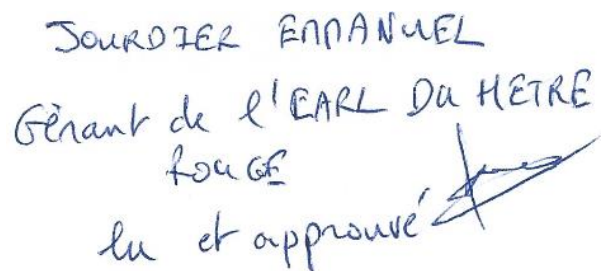 JOURDIER EMMANUEL
Gérant de l'EARL DU HETRE
ROUGE
lu et approuvé